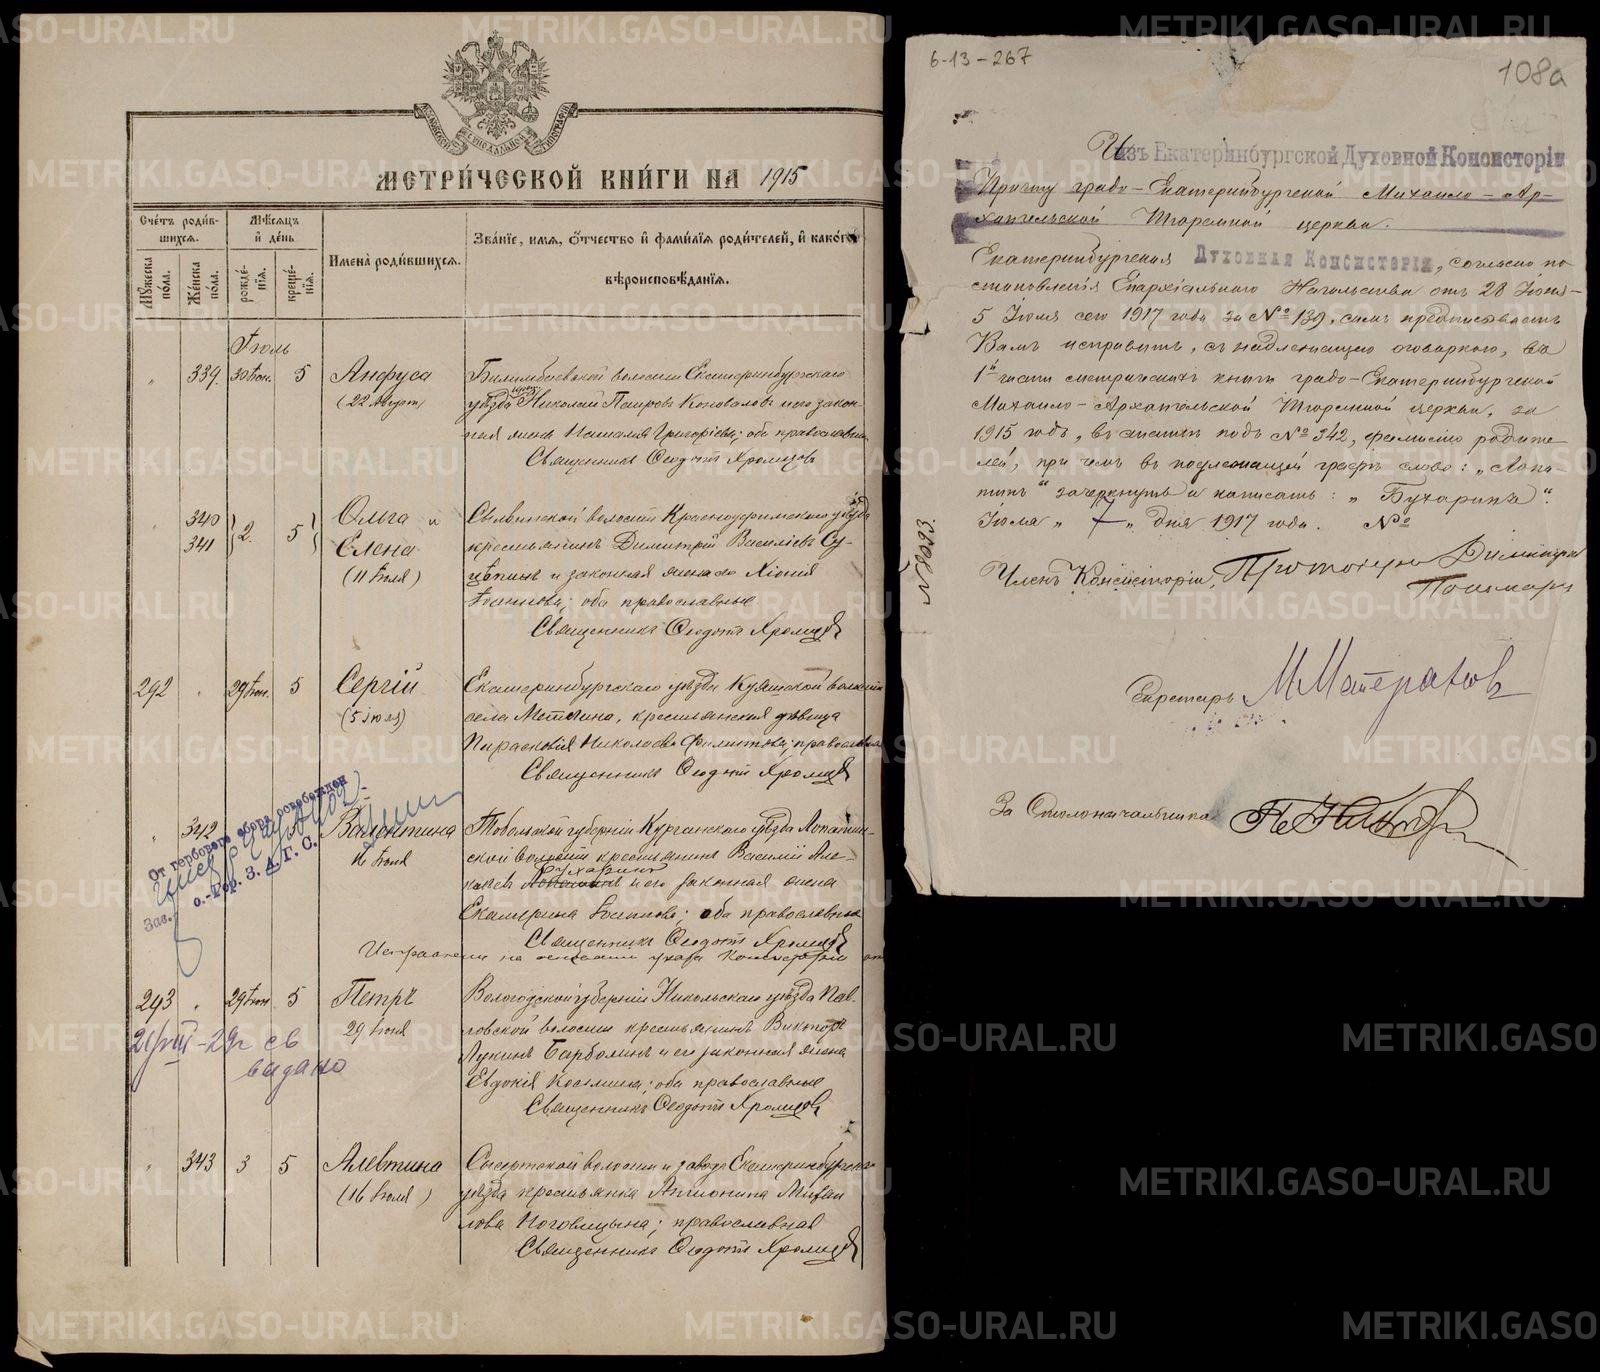 МЕТРИ́ЧЕСКОЙ КНИ́ГИ НА 1915
Счётъ роди́в-
шихся.
Мѣ́сяцъ
и҆ де́нь
Имена̀ роди́вшихся.
Зва́нїе, и҆мя, ѻ҆́тчество и҆ фами́лїя роди́телей, и҆ како́гѡ
вѣроисповѣ́данїя.
Мꙋ́жеска по́ла.
Же́нска по́ла.
рожде́нїя.
креще́нїя.
Іюль
" 339. 30 Іюн. 5 Анфуса
(22 Август)
Билимбаевской волости Екатеринбургскаго
уѣзда Николай Петровъ Коноваловъ и его закон-
ная жена Наталия Григорiева; оба православные
Священникъ Ѳеодотъ Хромцовъ
340 341 2. 5 Ольга и
Елена
(11 Іюля)
Сылвинской волости Красноуфимскаго уѣзда
крестьянинъ Димитрій Василіевъ Су-
и законная жена его Хіонія
Іоаннова; оба православные
Священникъ Ѳеодотъ Хромцовъ
292 " 29 Іюн. 5 Сергій
(5 июля)
Екатеринбургскаго уѣзда Куяшской волости
села Метлино, крестьянская дѣвица
Парасковія Николаева Филиппова; православная
Священникъ Ѳеодотъ Хромцовъ
" 342 Валентина
16 Іюля
От гербового сбора освобожден
о.-Гор. З. А. Г. С.
Зав.
Тобольской губерніи Курганскаго уѣзда Лопатин-
ской волости крестьянинъ Василій Але-
Бухаринъ
Лопатинъ и его законная жена
Екатерина Іоаннова; оба православные
Священникъ Ѳеодотъ Хромцовъ
Исправлено на основании указа Консисторіи от
293 " 29 Іюн. 5 Петръ
29 Іюня
выдано
Вологодской губерніи Никольскаго уѣзда Пав-
ловской волости крестьянинъ Викторъ
Лукинъ Барболинъ и его законная жена
Евдокія Косьмина; оба православные
Священникъ Ѳеодотъ Хромцовъ
" 343 3 5 Алевтина
(16 Іюля)
Сысертской волости и завода Екатеринбургскаго
уѣзда крестьянка Антонина Михаи
лова Ноговицына; православная
Священникъ Ѳеодотъ Хромцовъ
6-13-267
108а
Изъ Екатеринбургской Духовной Консисторіи
Причту градо-Екатеринбургской Михаило-Ар-
хангельской Тюремной церкви.
Екатеринбургская Духовная Консисторія, согласно по
становленія Епархіальнаго Начальства отъ 28 Іюня-
5 Іюля сего 1917 года за № 139, симъ предписываетъ
Вамъ исправить, съ надлежащею оговоркою, въ
1й части метрическихъ книгъ градо-Екатеринбургской
Михаило-Архангельской Тюремной церкви, за
1915 годъ, въ статьѣ подъ № 342, фамилію родите-
лей, при чемъ въ подлежащей графѣ слово: „Лопа-
тинъ" зачеркнуть и написать: „Бухаринъ".
Іюля „7" дня 1917 года. №
Членъ Консисторіи, Протоіерей Димитрій
Секретарь
За Столоначальника
METRIKI.GASO-URAL.RU